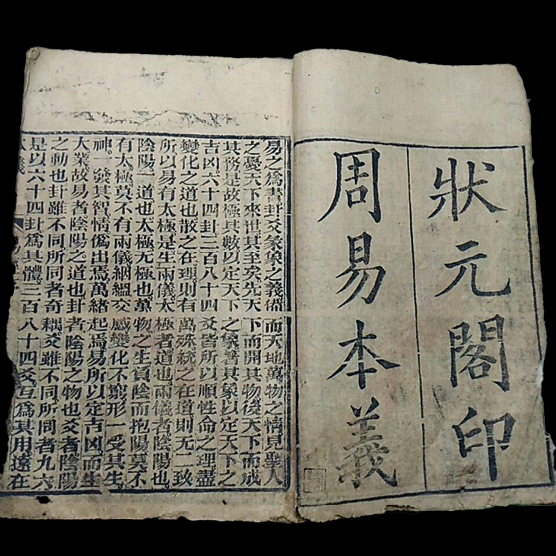 狀元閣印
周易本義
易之爲書卦爻彖象之義備而天地萬物之情見聖人
之憂天下來世其至矣先天下而開其物後天下而成
其務是故極其數以定天下之象著其象以定天下之
吉凶六十四卦三百八十四爻皆所以順性命之理盡
變化之道也散之在理則有萬殊統之在道則无二致
所以易有太極是生兩儀太極者道也兩儀者陰陽也
陰陽一道也太極无極也萬物之生負陰而抱陽莫不
有太極莫不有兩儀絪縕交感變化不窮形一受其生
神一發其智情僞出焉萬緒起焉易所以定吉凶而生
大業故易者陰陽之道也卦者陰陽之物也爻者陰陽
之動也卦雖不同所同者奇耦爻雖不同所同者九六
是以六十四卦爲其體三百八十四爻互爲其用遠在